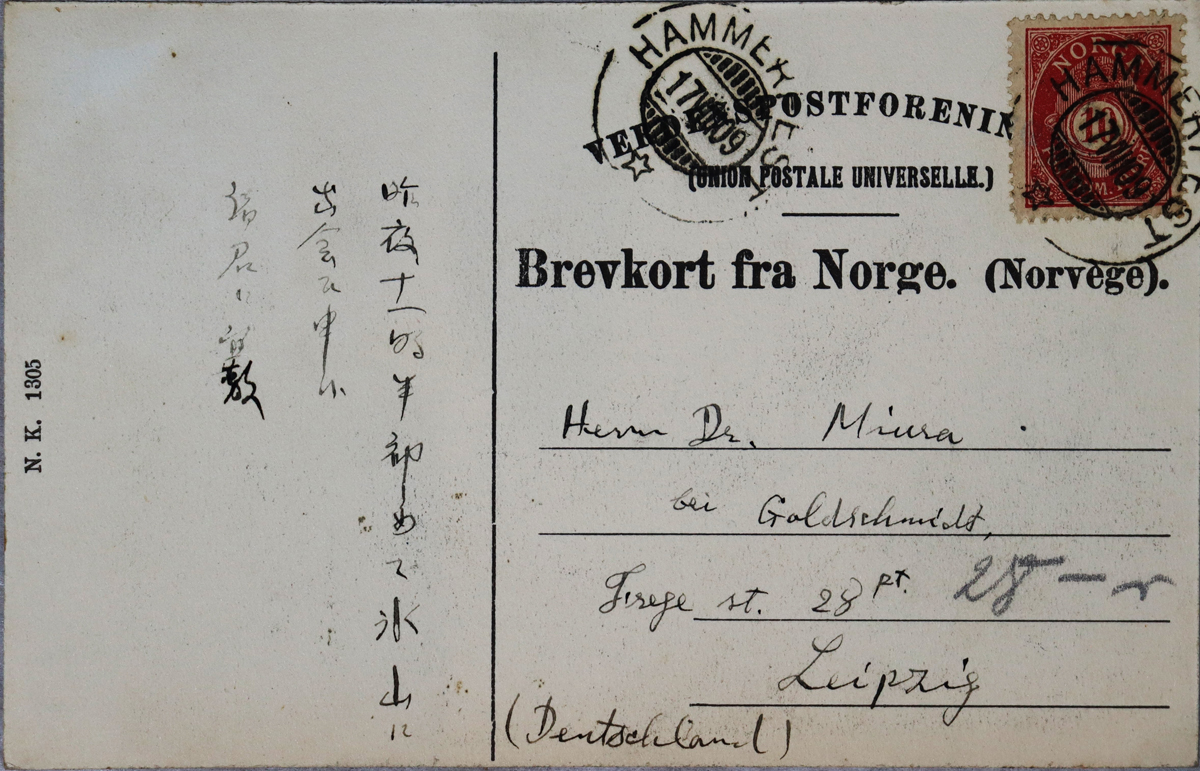 昨夜十一時半初めて氷山に
出会ひ申候
諸君に
N. K. 1305
HAMMERFEST
17 VII 09
VERDENSPOSTFORENIN
(UNION POSTALE UNIVERSELLE.)
NORGE
HAMMERFEST
17 VII 09
Brevkort fra Norge. (Norvège).
Herrn Dr. Miura
bei Goldschmidt,
Frege st. 28 pt.
28
Leipzig
(Deutschland)